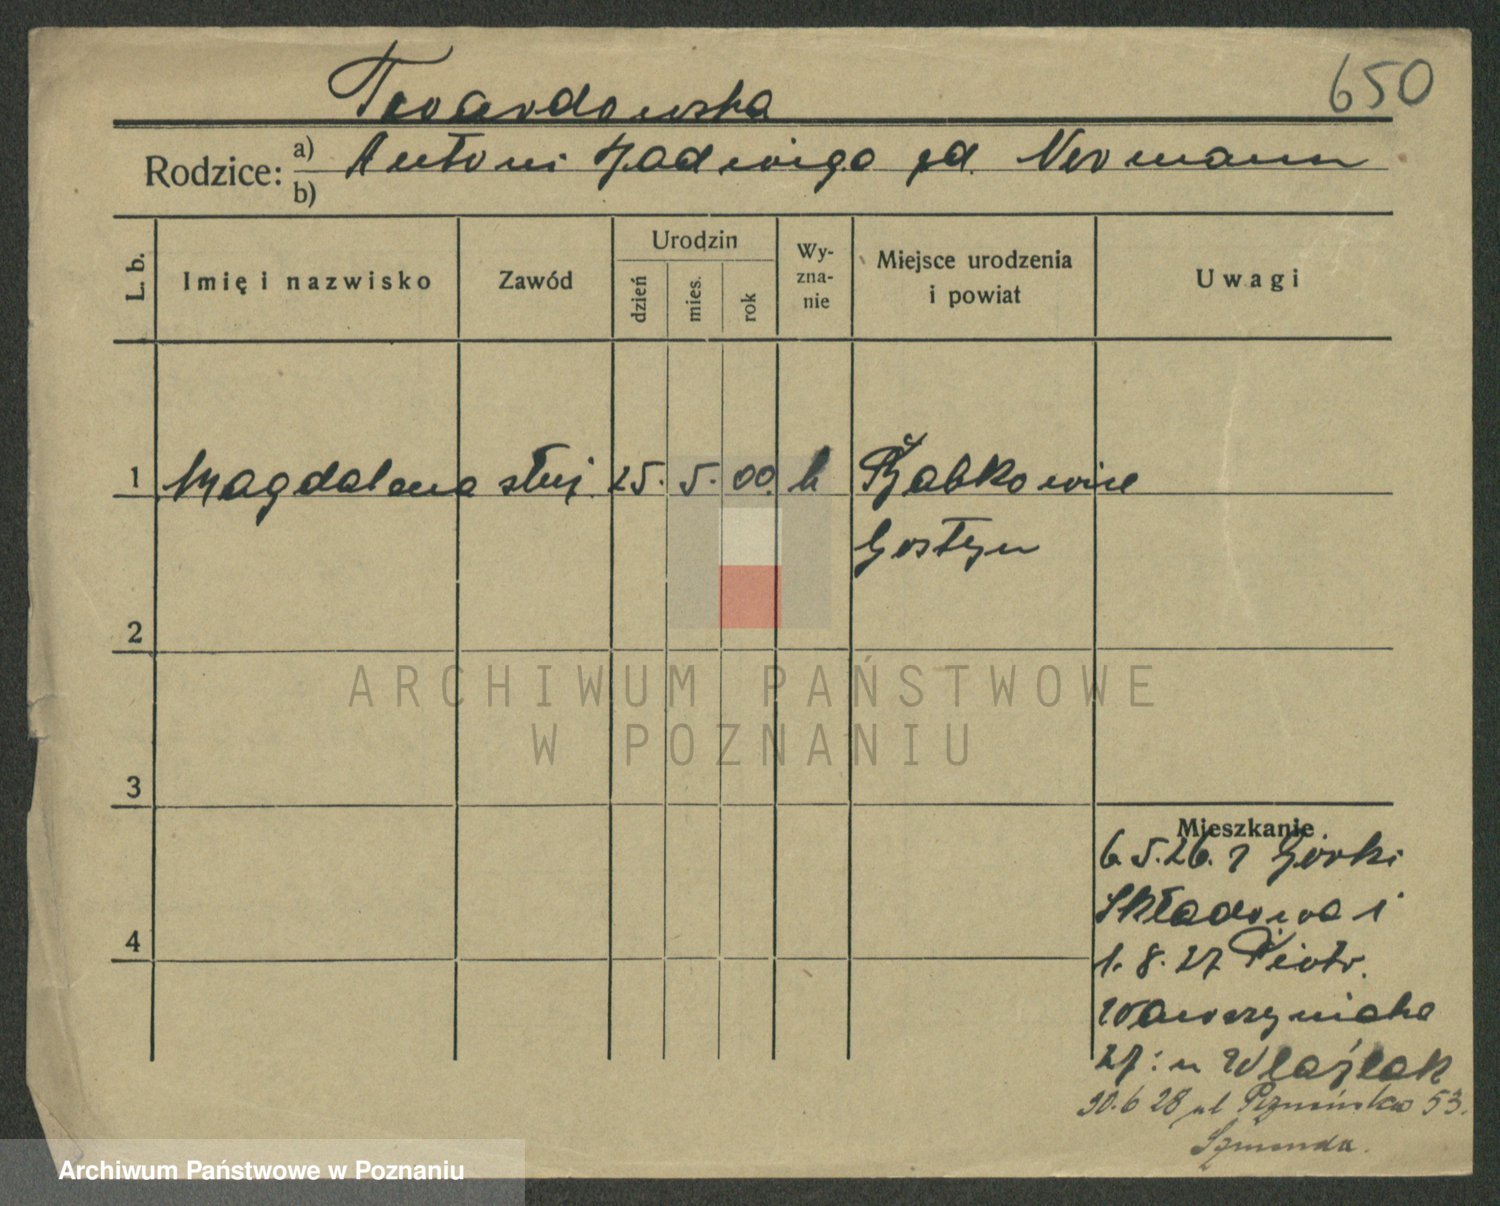 650
Twardowska
Rodzice: a) Antoni Jadwiga zd. Neumann
b)
L. b. Imię i nazwisko Zawód Urodzin dzień mies. rok Wy-zna-nie Miejsce urodzenia i powiat Uwagi
1 Magdalena służ. 25. 5. 00. k Bąbkowice
Gostyn
2
3
4
Mieszkanie
6.5.26. z Górki
Składowa 1
1. 8. 27 Piotr.
Wawrzyniaka
27: u Wlaźlak
30.6 28 ul Poznańska 53.
Szmenda.
ARCHIWUM PAŃSTWOWE
W POZNANIU
Archiwum Państwowe w Poznaniu